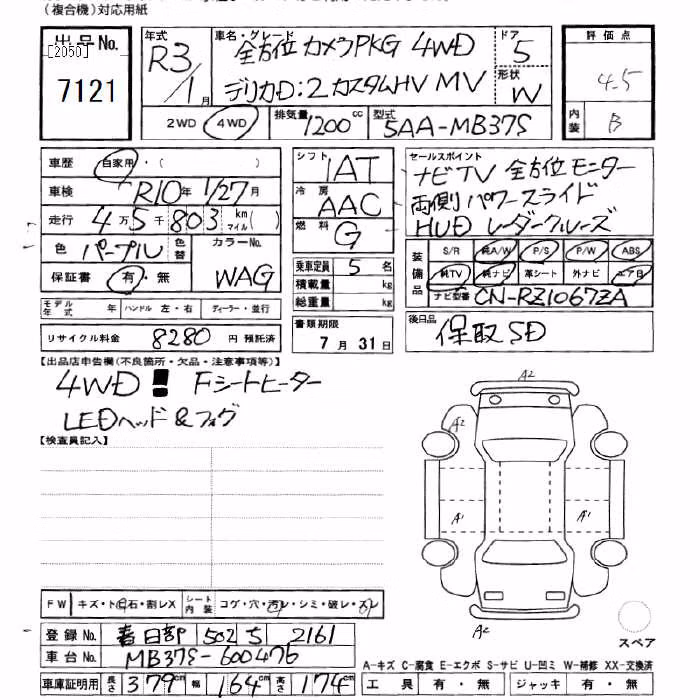 (複合機)対応用紙
出品No.
[2050]
7121
年式
R3/1月
車名・グレード
全方位カメラPKG 4WD
デリカD:2カスタムHV MV
ドア
5
形状
W
評価点
4.5
内装
B
2WD 4WD
排気量 1200cc
型式 5AA-MB37S
車歴 自家用・( )
車検 R10年1/27月
走行 4万5千803km マイル( )
色 パープル 色替
カラーNo. WAG
保証書 有・無
モデル年式 年 ハンドル 左・右 ディーラー・並行
リサイクル料金 8280円 預託済
シフト IAT
冷房 AAC
燃料 G
乗車定員 5名
積載量 kg
総重量 kg
書類期限
7月31日
セールスポイント
ナビTV 全方位モニター
両側パワースライド
HUD レーダークルーズ
装備品
S/R 純A/W P/S P/W ABS
純TV 純ナビ 革シート 外ナビ エアB
ナビ型番 CN-RZ1067ZA
後日品 保取SD
【出品店申告欄(不良箇所・欠品・注意事項等)】
4WD! Fシートヒーター
LEDヘッド&フォグ
【検査員記入】
A2
A2
A1
A1
A2
FW キズ・ト・石・割レX
シート内装 コゲ・穴・汚レ・シミ・破レ・スレ
登録No. 春日部 502 ら 2161
車台No. MB37S-600476
車庫証明用 長さ 379cm 幅 164cm 高さ 174cm
スペア
A-キズ C-腐食 E-エクボ S-サビ U-凹ミ W-補修 XX-交換済
工具 有・無 ジャッキ 有・無